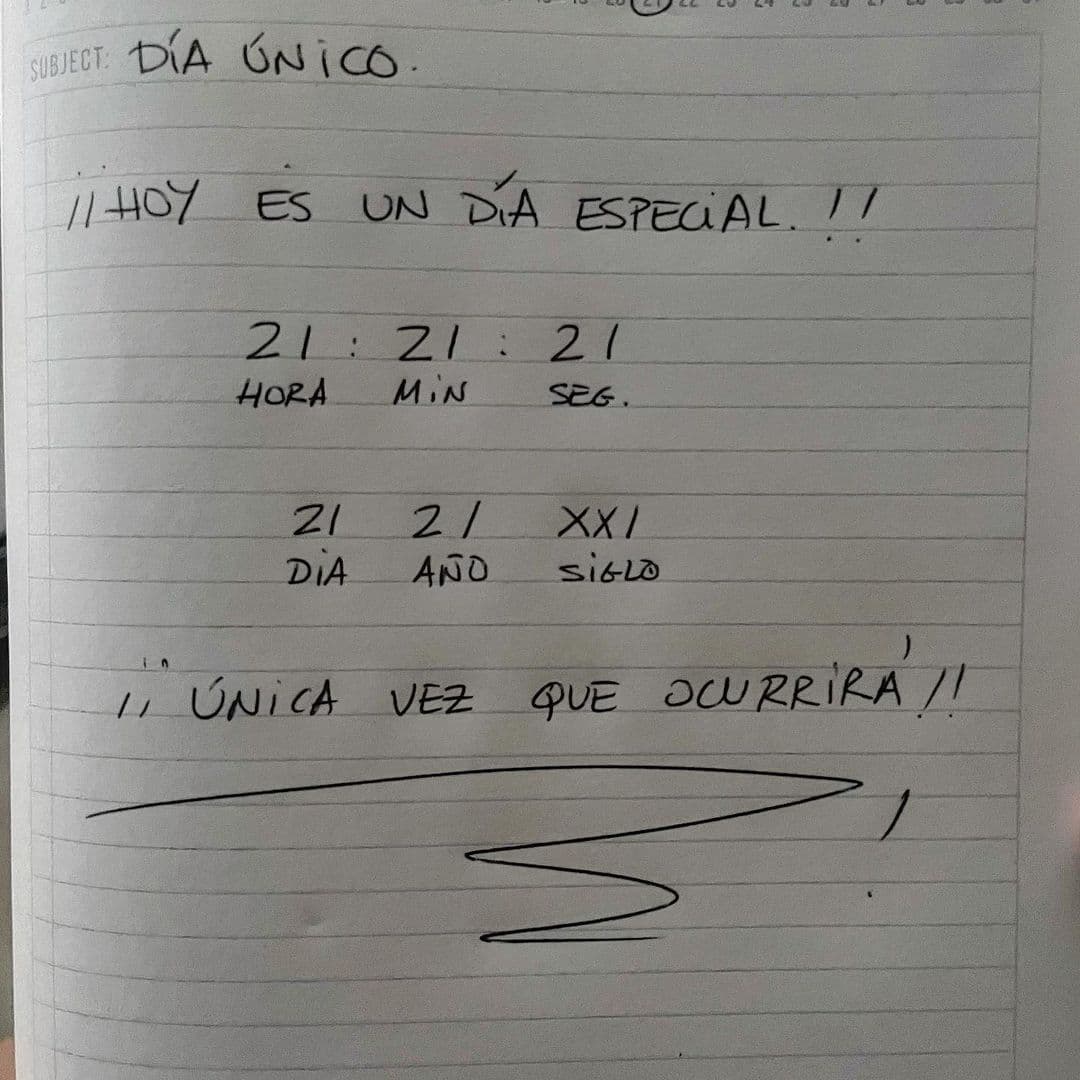 21 22
SUBJECT: DÍA ÚNICO.
¡¡HOY ES UN DÍA ESPECIAL.!!
21 : 21 : 21
HORA MIN SEG.
21 21 XXI
DIA AÑO SIGLO
¡¡ ÚNICA VEZ QUE OCURRIRÁ !!